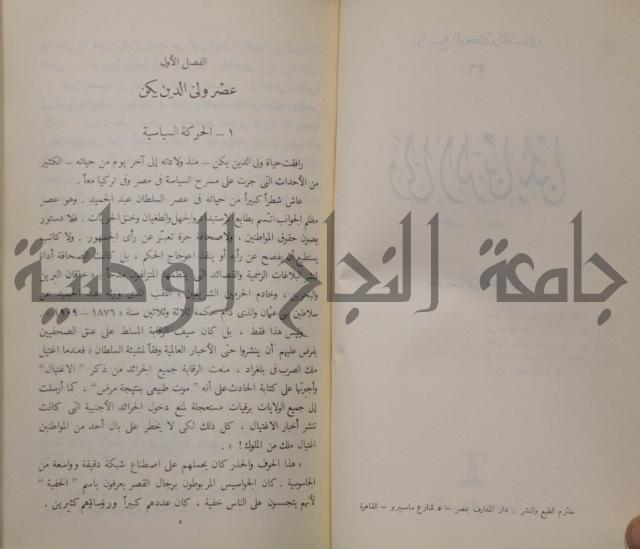 نوابغ الفكر العربى
٢٦
ولى الدين يكن
ملتزم الطبع والنشر : دار المعارف بمصر – ٥ شارع ماسبيرو – القاهرة
الفصل الأول
عصر ولى الدين يكن
١ – الحركة السياسية
رافقت حياة ولى الدين يكن – منذ ولادته إلى آخر يوم من حياته – الكثير
من الأحداث التى جرت على مسرح السياسة فى مصر وفى تركيا معاً .
عاش شطراً كبيراً من حياته فى عصر السلطان عبد الحميد . وهو عصر
مظلم الجوانب اتّسم بطابع الاستبداد والجهل والطغيان وخنق الحريات . فلا دستور
يصون حقوق المواطنين ، ولا صحافة حرة تعبّر عن رأى الجمهور . ولا كاتب
يستطيع أن يفصح عن رأيه أو ينقد اعوجاج الحكم ، بل كانت الصحافة أداة
لنشر البلاغات الرسمية والقصائد التى ينظمها المتزلفون مدحاً بـ « خاقان البرين
والبحرين ، وخادم الحرمين الشريفين » اللقب الذى ورثه عبد الحميد عن
سلاطين بنى عثمان والذى دام حكمه ثلاثة وثلاثين سنة « ١٨٧٦ – ١٩٠٩ » .
وليس هذا فقط ، بل كان سيف الرقابة المسلط على عنق الصحفيين
يفرض عليهم أن ينشروا حتى الأخبار العالمية وفقاً لمشيئة السلطان « فعندما اغتيل
ملك الصرب فى بلغراد ، منعت الرقابة جميع الجرائد من ذكر "الاغتيال"
وأجبرتها على كتابة الحادث على أنه "موت طبيعى بنتيجة مرض" ، كما أرسلت
إلى جميع الولايات برقيات مستعجلة لمنع دخول الجرائد الأجنبية التى كانت
تنشر أخبار الاغتيال ، كل ذلك لكى لا يخطر على بال أحد من المواطنين
اغتيال ملك من الملوك ! » .
« هذا الخوف والحذر كان يحملهم على اصطناع شبكة دقيقة وواسعة من
الجاسوسية . كان الجواسيس المربوطون برجال القصر يعرفون باسم "الخفية"
لأنهم يتجسسون على الناس خفية ، كان عددهم كبيراً ورؤساؤهم كثيرين .
٥
جامعة النجاح الوطنية